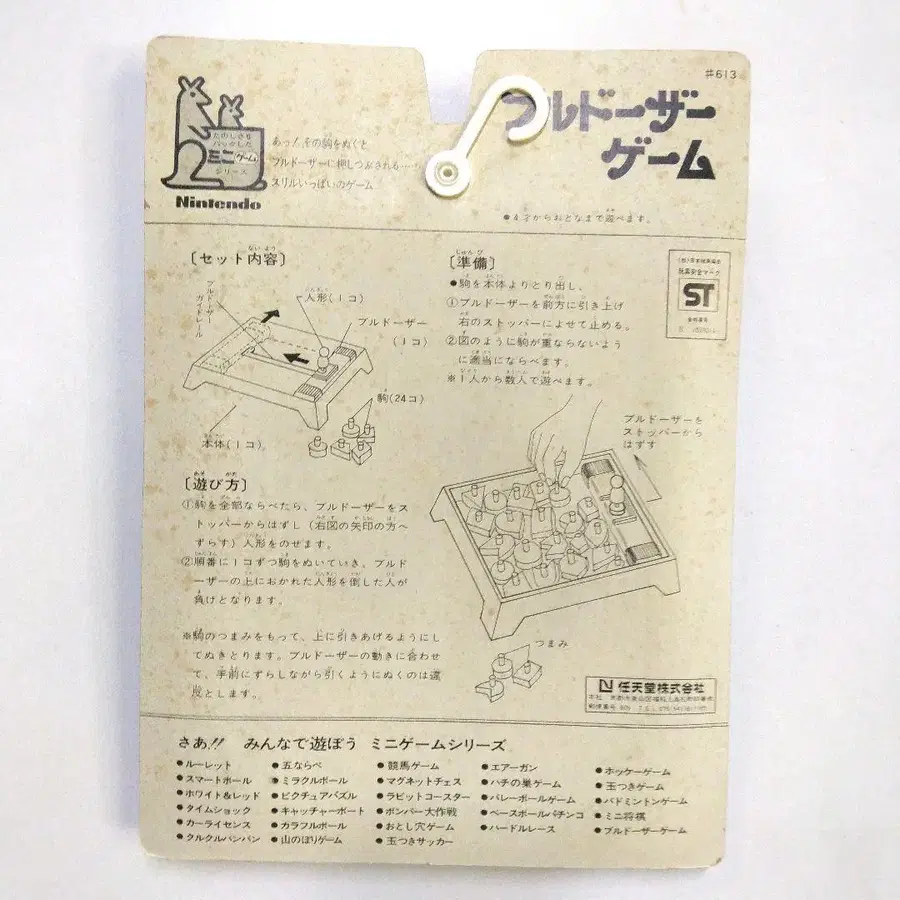 #613
ブルドーザー
ゲーム
たのしさを
パックした
ミニゲーム
シリーズ
Nintendo
あっ!その駒をぬくと
ブルドーザーに押しつぶされる……
スリルいっぱいのゲーム
●4才からおとなまで遊べます。
〔セット内容〕
ブルドーザー
ガイドレール
人形(1コ)
ブルドーザー
(1コ)
駒(24コ)
本体(1コ)
〔準備〕
●駒を本体よりとり出し、
①ブルドーザーを前方に引き上げ
右のストッパーによせて止める。
②図のように駒が重ならないよう
に適当にならべます。
※1人から数人で遊べます。
玩具安全マーク
ST
ブルドーザーを
ストッパーから
はずす
〔遊び方〕
①駒を全部ならべたら、ブルドーザーをス
トッパーからはずし(右図の矢印の方へ
ずらす)人形をのせます。
②順番に1コずつ駒をぬいていき、ブルド
ーザーの上におかれた人形を倒した人が
負けとなります。
※駒のつまみをもって、上に引きあげるようにし
てぬきとります。ブルドーザーの動きに合わせ
て、手前にずらしながら引くようにぬくのは違
反とします。
つまみ
任天堂株式会社
さあ!! みんなで遊ぼう ミニゲームシリーズ
●ルーレット
●スマートボール
●ホワイト&レッド
●タイムショック
●カーライセンス
●クルクルパンパン
●五ならべ
●ミラクルボール
●ピクチュアパズル
●キャッチャーボート
●カラフルボール
●山のぼりゲーム
●競馬ゲーム
●マグネットチェス
●ラビットコースター
●ボンバー大作戦
●おとし穴ゲーム
●玉つきサッカー
●エアーガン
●ハチの巣ゲーム
●バレーボールゲーム
●ベースボールパチンコ
●ハードルレース
●ホッケーゲーム
●玉つきゲーム
●バドミントンゲーム
●ミニ将棋
●ブルドーザーゲーム